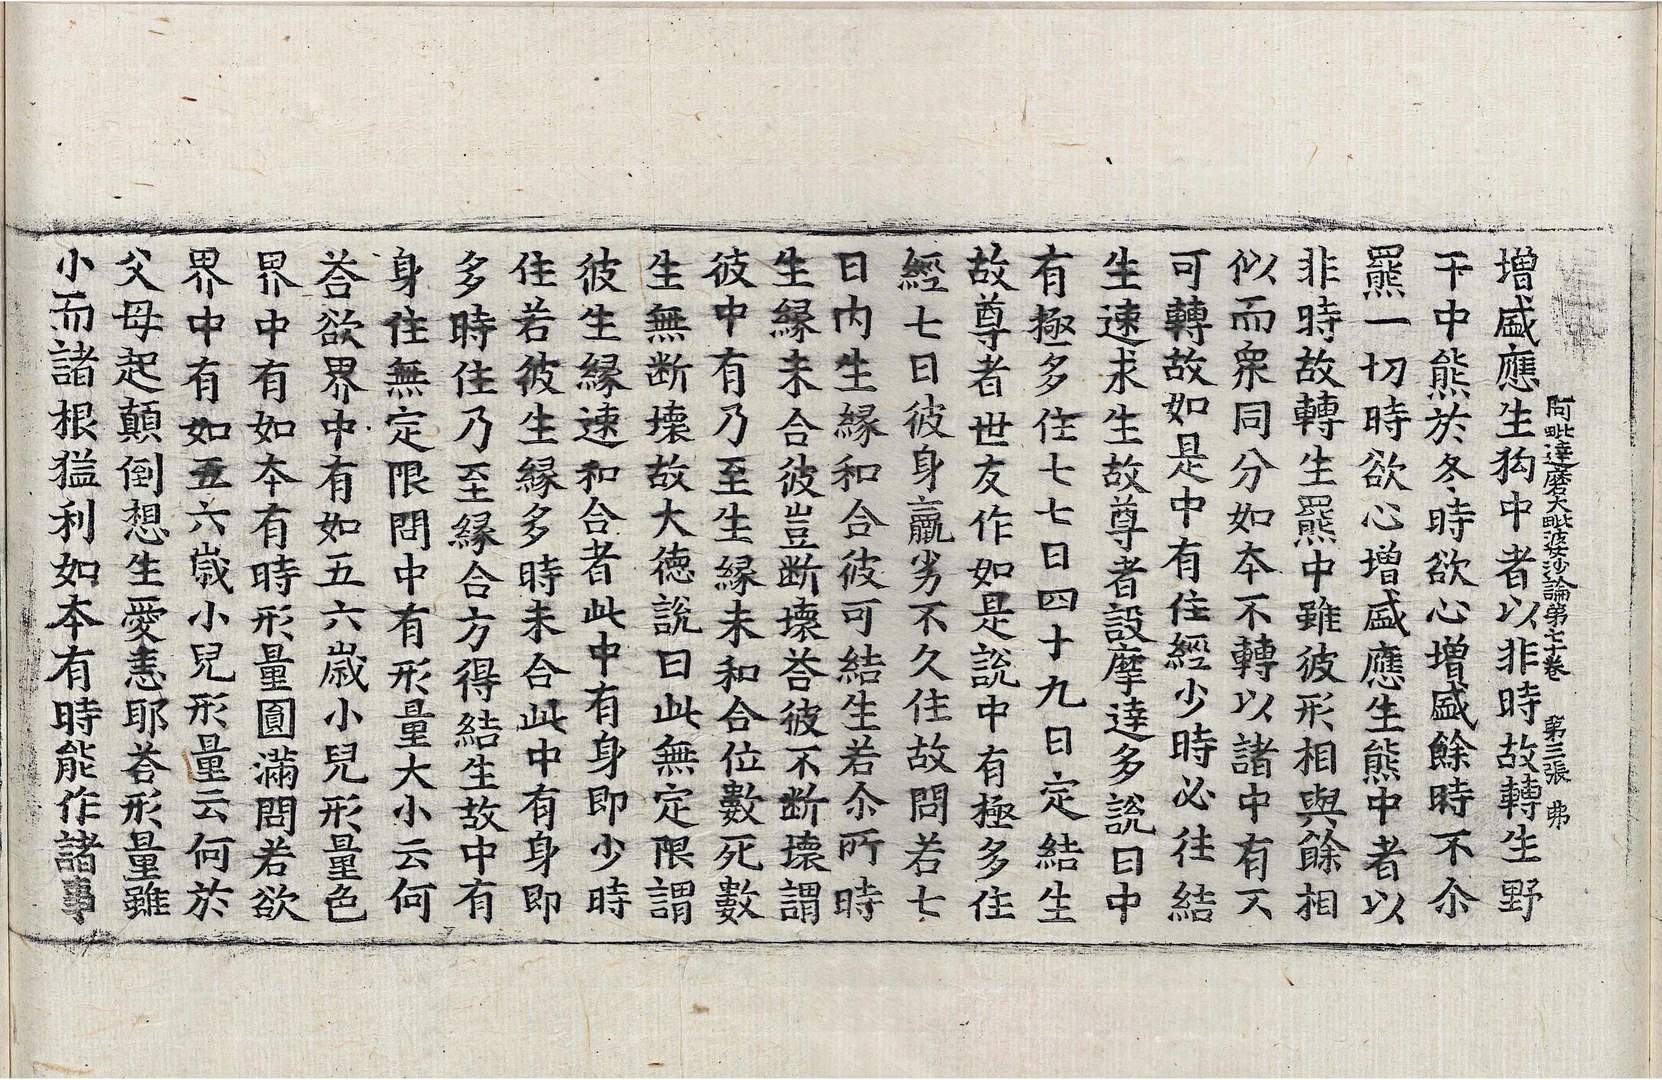 阿毗達磨大毗婆沙論第七十卷　第三張　弗
增盛應生狗中者以非時故轉生野
干中熊於冬時欲心增盛餘時不尒
羆一切時欲心增盛應生熊中者以
非時故轉生羆中雖彼形相與餘相
似而衆同分如本不轉以諸中有不
可轉故如是中有住經少時必往結
生速求生故尊者設摩達多說曰中
有極多住七七日四十九日定結生
故尊者世友作如是說中有極多住
經七日彼身羸劣不久住故問若七
日內生縁和合彼可結生若尒所時
生縁未合彼豈断壞荅彼不断壞謂
彼中有乃至生縁未和合位數死數
生無断壞故大德說曰此無定限謂
彼生縁速和合者此中有身即少時
住若彼生縁多時未合此中有身即
多時住乃至縁合方得結生故中有
身住無定限問中有形量大小云何
荅欲界中有如五六歲小兒形量色
界中有如本有時形量圓滿問若欲
界中有如五六歲小兒形量云何於
父母起顛倒想生愛恚耶荅形量雖
小而諸根猛利如本有時能作諸事